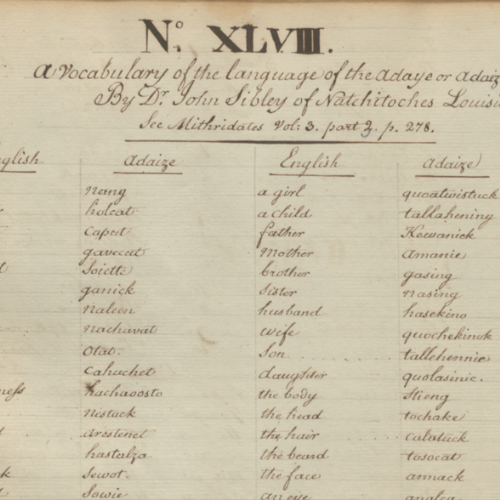 No. XLVIII.
a vocabulary of the language of the adaye or adaiz
By Dr. John Sibley of Natchitoches Louisi
See Mithridates Vol: 3. part 2. p. 278.
nglish adaize English adaize
nang a girl quoatwistuck
holcat a child tallahening
Caput father Kewanick
gavecut Mother amanie
Soiette brother gasing
ganick Sister nasing
naleen husband hasekino
nachavat wife quochekinok
Otat. Son tallehennie
Cahuchet daughter quolasinic.
ness hachaoosto the body Stieng
nistuck the head tochake
arestenet the hair calatuck
hastalza the beard tosocat
k Sewot. the face annack
Sowie an eye analca